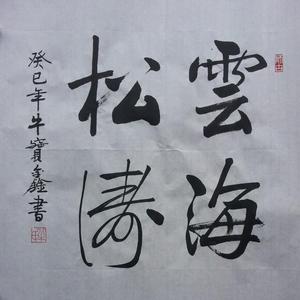 雲海
松濤
癸巳年牛寶鑫書